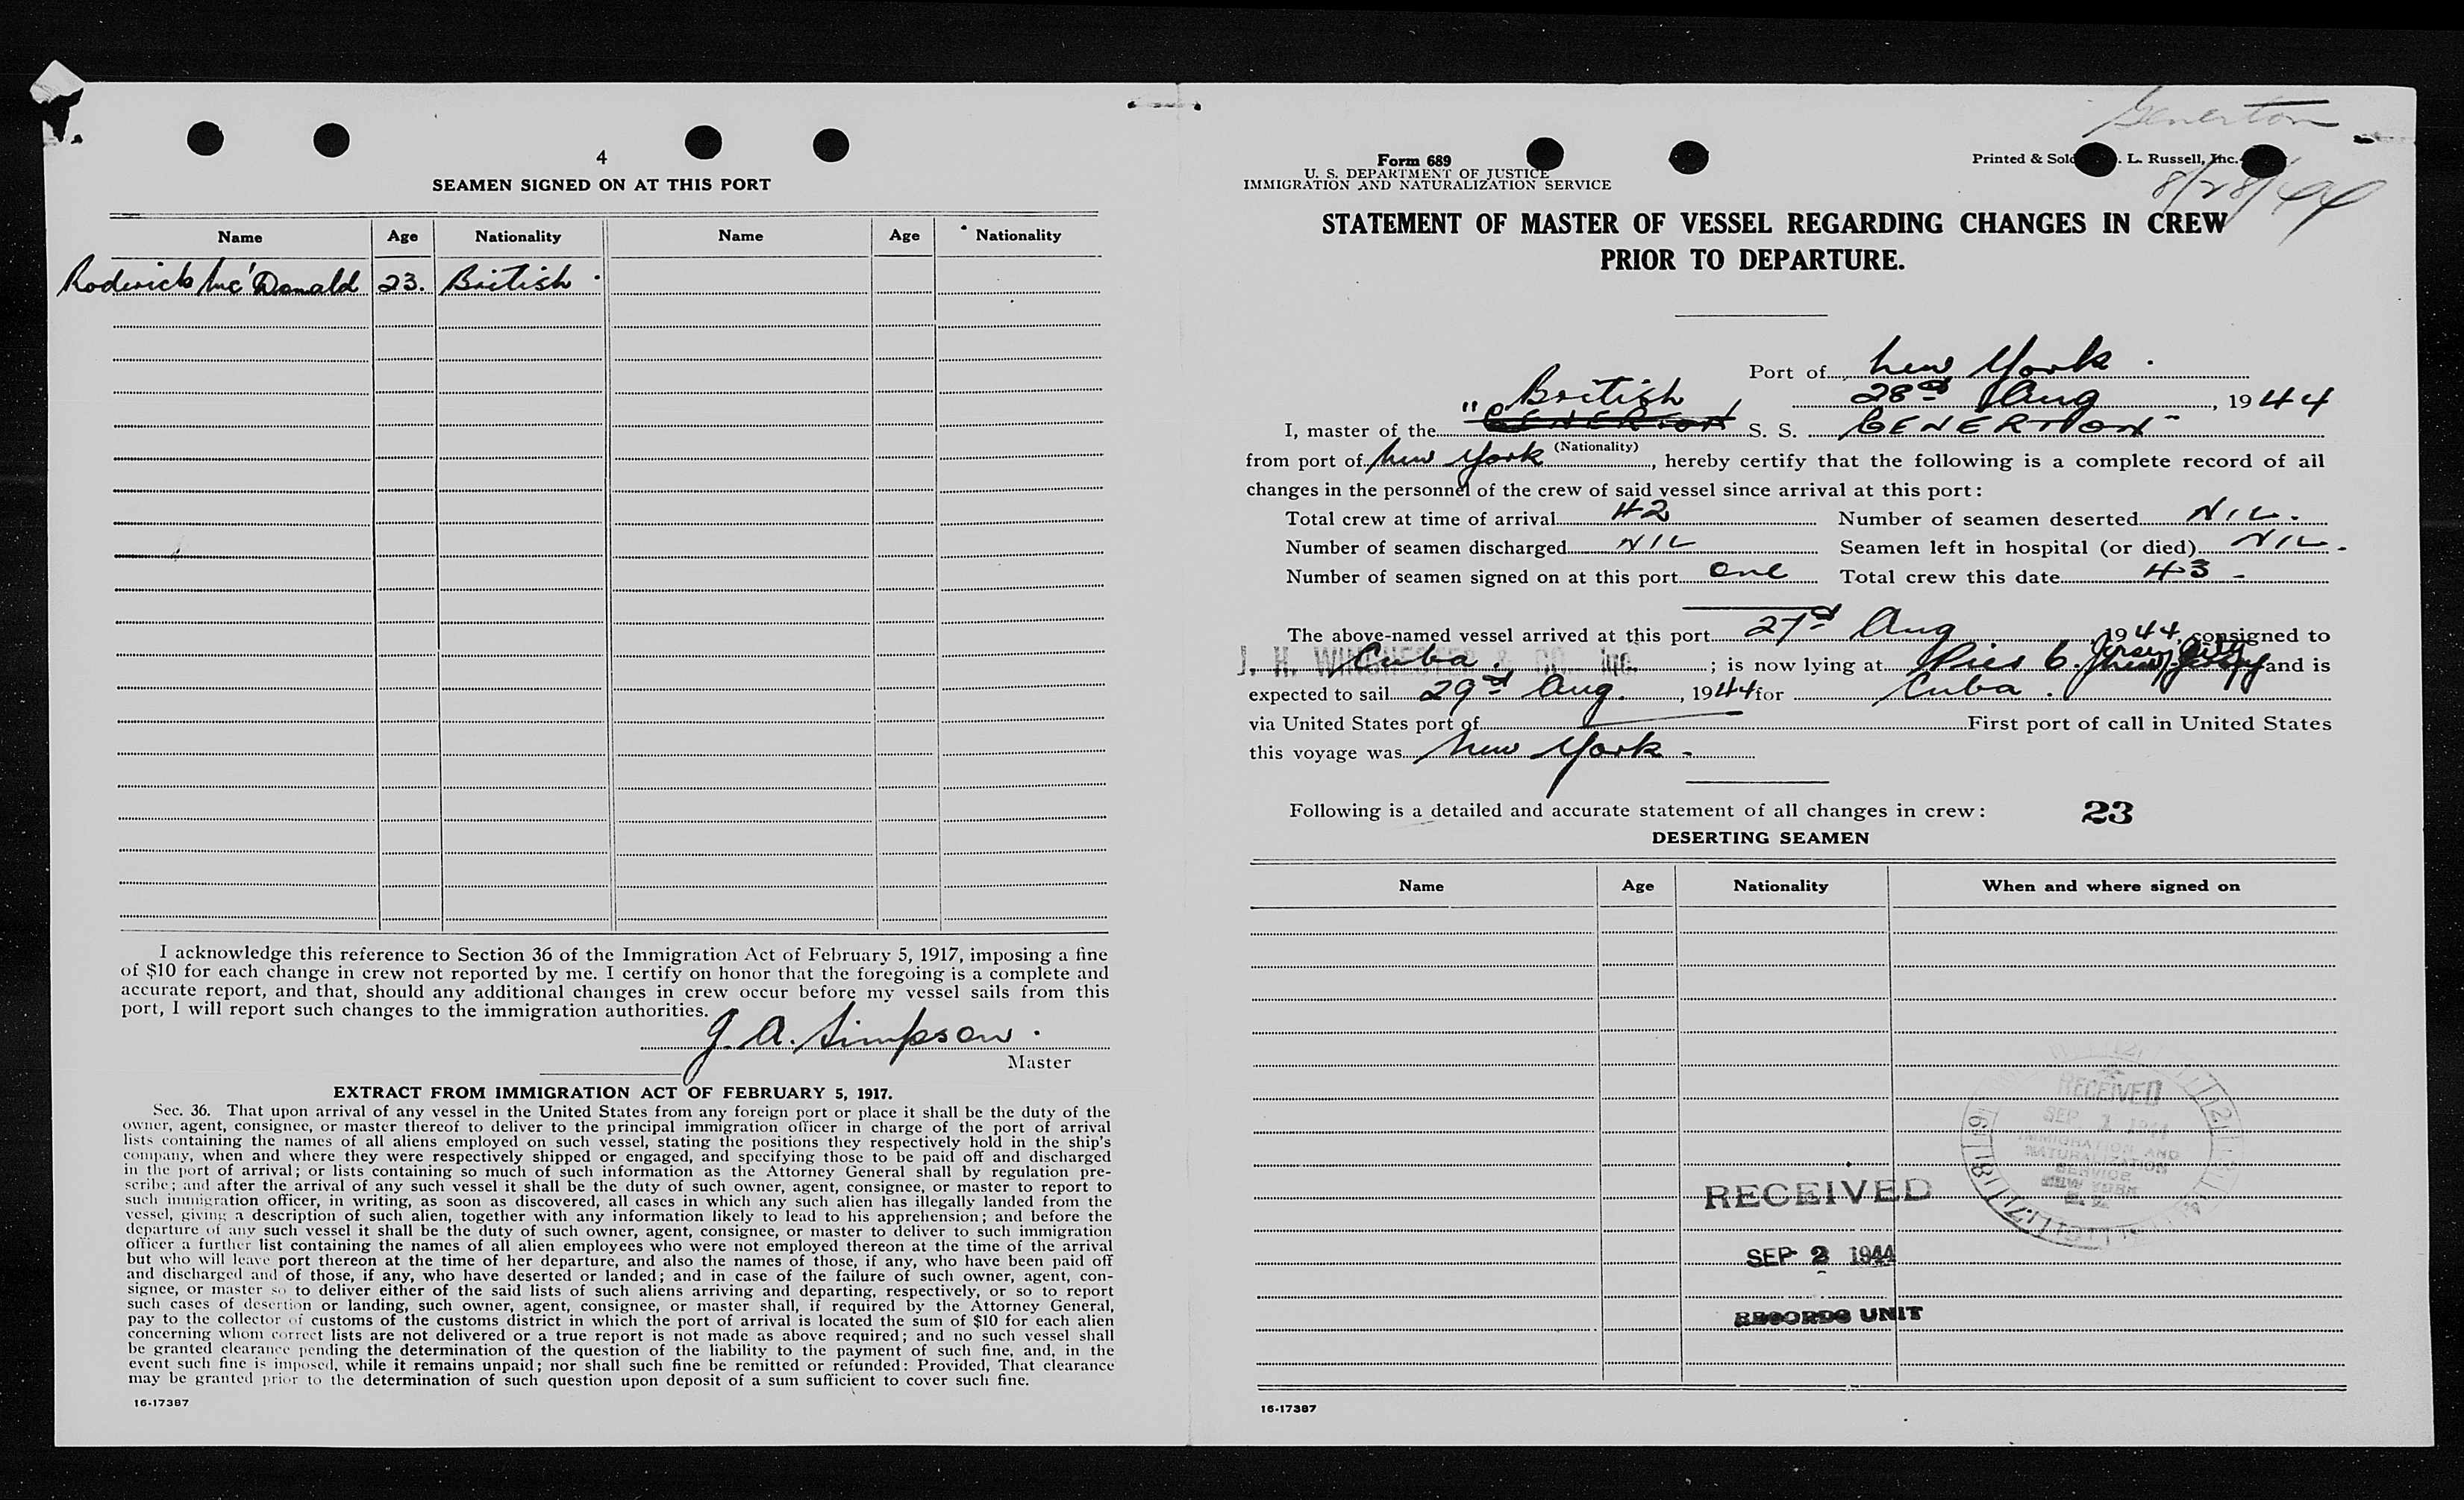 4
SEAMEN SIGNED ON AT THIS PORT
Name Age Nationality Name Age Nationality
Roderick Mc'Donald 23. British.
I acknowledge this reference to Section 36 of the Immigration Act of February 5, 1917, imposing a fine
of $10 for each change in crew not reported by me. I certify on honor that the foregoing is a complete and
accurate report, and that, should any additional changes in crew occur before my vessel sails from this
port, I will report such changes to the immigration authorities.
J. A. Simpson.
Master
EXTRACT FROM IMMIGRATION ACT OF FEBRUARY 5, 1917.
Sec. 36. That upon arrival of any vessel in the United States from any foreign port or place it shall be the duty of the
owner, agent, consignee, or master thereof to deliver to the principal immigration officer in charge of the port of arrival
lists containing the names of all aliens employed on such vessel, stating the positions they respectively hold in the ship's
company, when and where they were respectively shipped or engaged, and specifying those to be paid off and discharged
in the port of arrival; or lists containing so much of such information as the Attorney General shall by regulation pre-
scribe; and after the arrival of any such vessel it shall be the duty of such owner, agent, consignee, or master to report to
such immigration officer, in writing, as soon as discovered, all cases in which any such alien has illegally landed from the
vessel, giving a description of such alien, together with any information likely to lead to his apprehension; and before the
departure of any such vessel it shall be the duty of such owner, agent, consignee, or master to deliver to such immigration
officer a further list containing the names of all alien employees who were not employed thereon at the time of the arrival
but who will leave port thereon at the time of her departure, and also the names of those, if any, who have been paid off
and discharged and of those, if any, who have deserted or landed; and in case of the failure of such owner, agent, con-
signee, or master so to deliver either of the said lists of such aliens arriving and departing, respectively, or so to report
such cases of desertion or landing, such owner, agent, consignee, or master shall, if required by the Attorney General,
pay to the collector of customs of the customs district in which the port of arrival is located the sum of $10 for each alien
concerning whom correct lists are not delivered or a true report is not made as above required; and no such vessel shall
be granted clearance pending the determination of the question of the liability to the payment of such fine, and, in the
event such fine is imposed, while it remains unpaid; nor shall such fine be remitted or refunded: Provided, That clearance
may be granted prior to the determination of such question upon deposit of a sum sufficient to cover such fine.
16-17387
Generton
8/28/44
Form 689
U. S. DEPARTMENT OF JUSTICE
IMMIGRATION AND NATURALIZATION SERVICE
Printed & Sold L. Russell, Inc.
STATEMENT OF MASTER OF VESSEL REGARDING CHANGES IN CREW
PRIOR TO DEPARTURE.
Port of New York.
28th Aug, 1944
British
I, master of the "GENERTON S. S. GENERTON"
(Nationality)
from port of New York, hereby certify that the following is a complete record of all
changes in the personnel of the crew of said vessel since arrival at this port:
Total crew at time of arrival 42 Number of seamen deserted NIL.
Number of seamen discharged NIL Seamen left in hospital (or died) NIL.
Number of seamen signed on at this port One Total crew this date 43 -
The above-named vessel arrived at this port 27th Aug 1944, consigned to
J. H. WINCHESTER & CO. Inc. Cuba.; is now lying at Pier 6. Jersey City and is
expected to sail 29th Aug., 1944 for Cuba.
via United States port of First port of call in United States
this voyage was New York -
Following is a detailed and accurate statement of all changes in crew: 23
DESERTING SEAMEN
Name Age Nationality When and where signed on
RECEIVED
SEP 1944
IMMIGRATION AND
NATURALIZATION
SERVICE
NEW YORK
RECEIVED
SEP 2 1944
RECORDS UNIT
16-17387